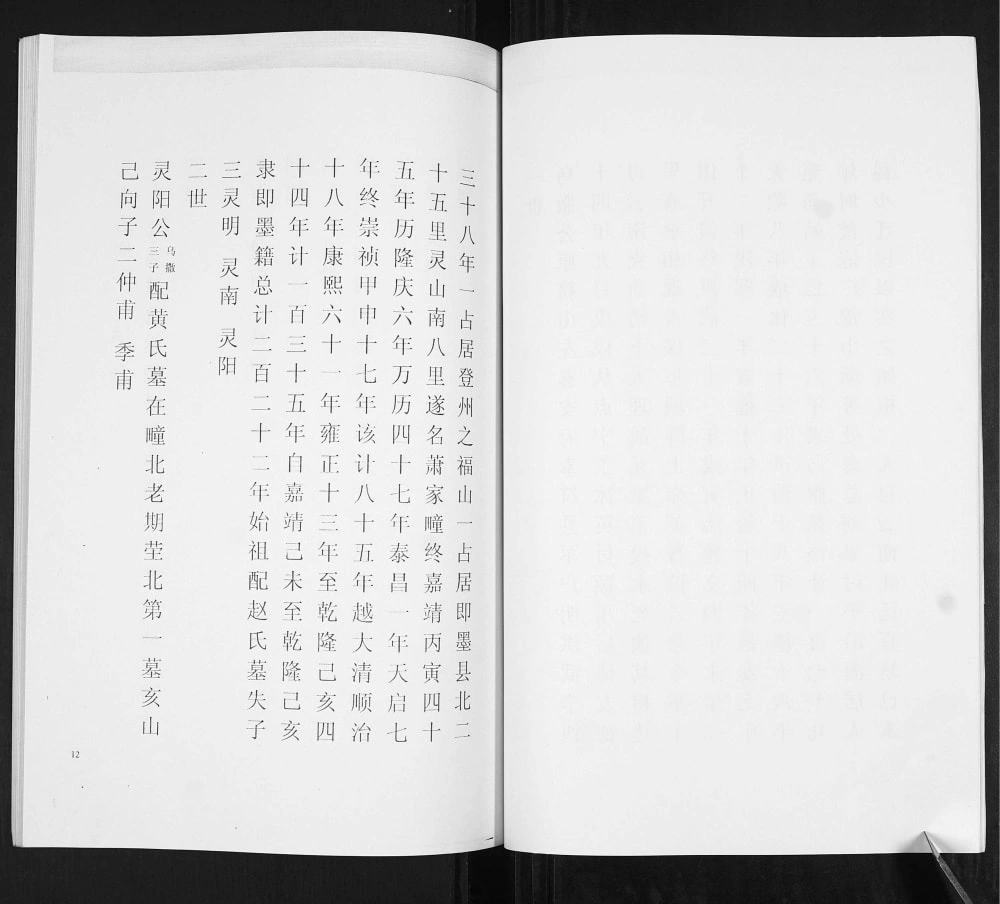 三十八年一占居登州之福山一占居即墨县北二
十五里灵山南八里遂名萧家疃终嘉靖丙寅四十
五年历隆庆六年万历四十七年泰昌一年天启七
年终崇祯甲申十七年该计八十五年越大清顺治
十八年康熙六十一年雍正十三年至乾隆己亥四
十四年计一百三十五年自嘉靖己未至乾隆己亥
隶即墨籍总计二百二十二年始祖配赵氏墓失子
三灵明 灵南 灵阳
二世
灵阳公乌撒三子配黄氏墓在疃北老期茔北第一墓亥山
己向子二仲甫 季甫
12